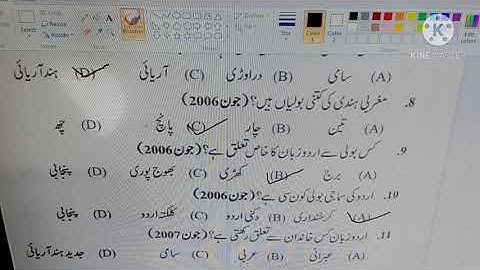 Crop
Resize
Rotate
Select
Brushes
Shapes
Outline
Fill
Size
Color 1
Color 2
KINEMASTER
(A) سامی (B) دراوڑی (C) آریائی (D) ہندآریائی
8. مغربی ہندی کی کتنی بولیاں ہیں؟ (جون2006)
(A) تین (B) چار (C) پانچ (D) چھ
9. کس بولی سے اردو زبان کا خاص تعلق ہے؟ (جون2006)
(A) برج (B) کھڑی (C) بھوج پوری (D) پنجابی
10. اردو کی سماجی بولی کون سی ہے؟ (جون2006)
(A) کرخنداری (B) دکنی اردو (C) کلکتہ اردو (D) پنجابی
11. اردو زبان کس خاندان سے تعلق رکھتی ہے؟ (جون2007)
(A) عبرانی (B) عربی (C) سامی (D) جدید ہندآریائی